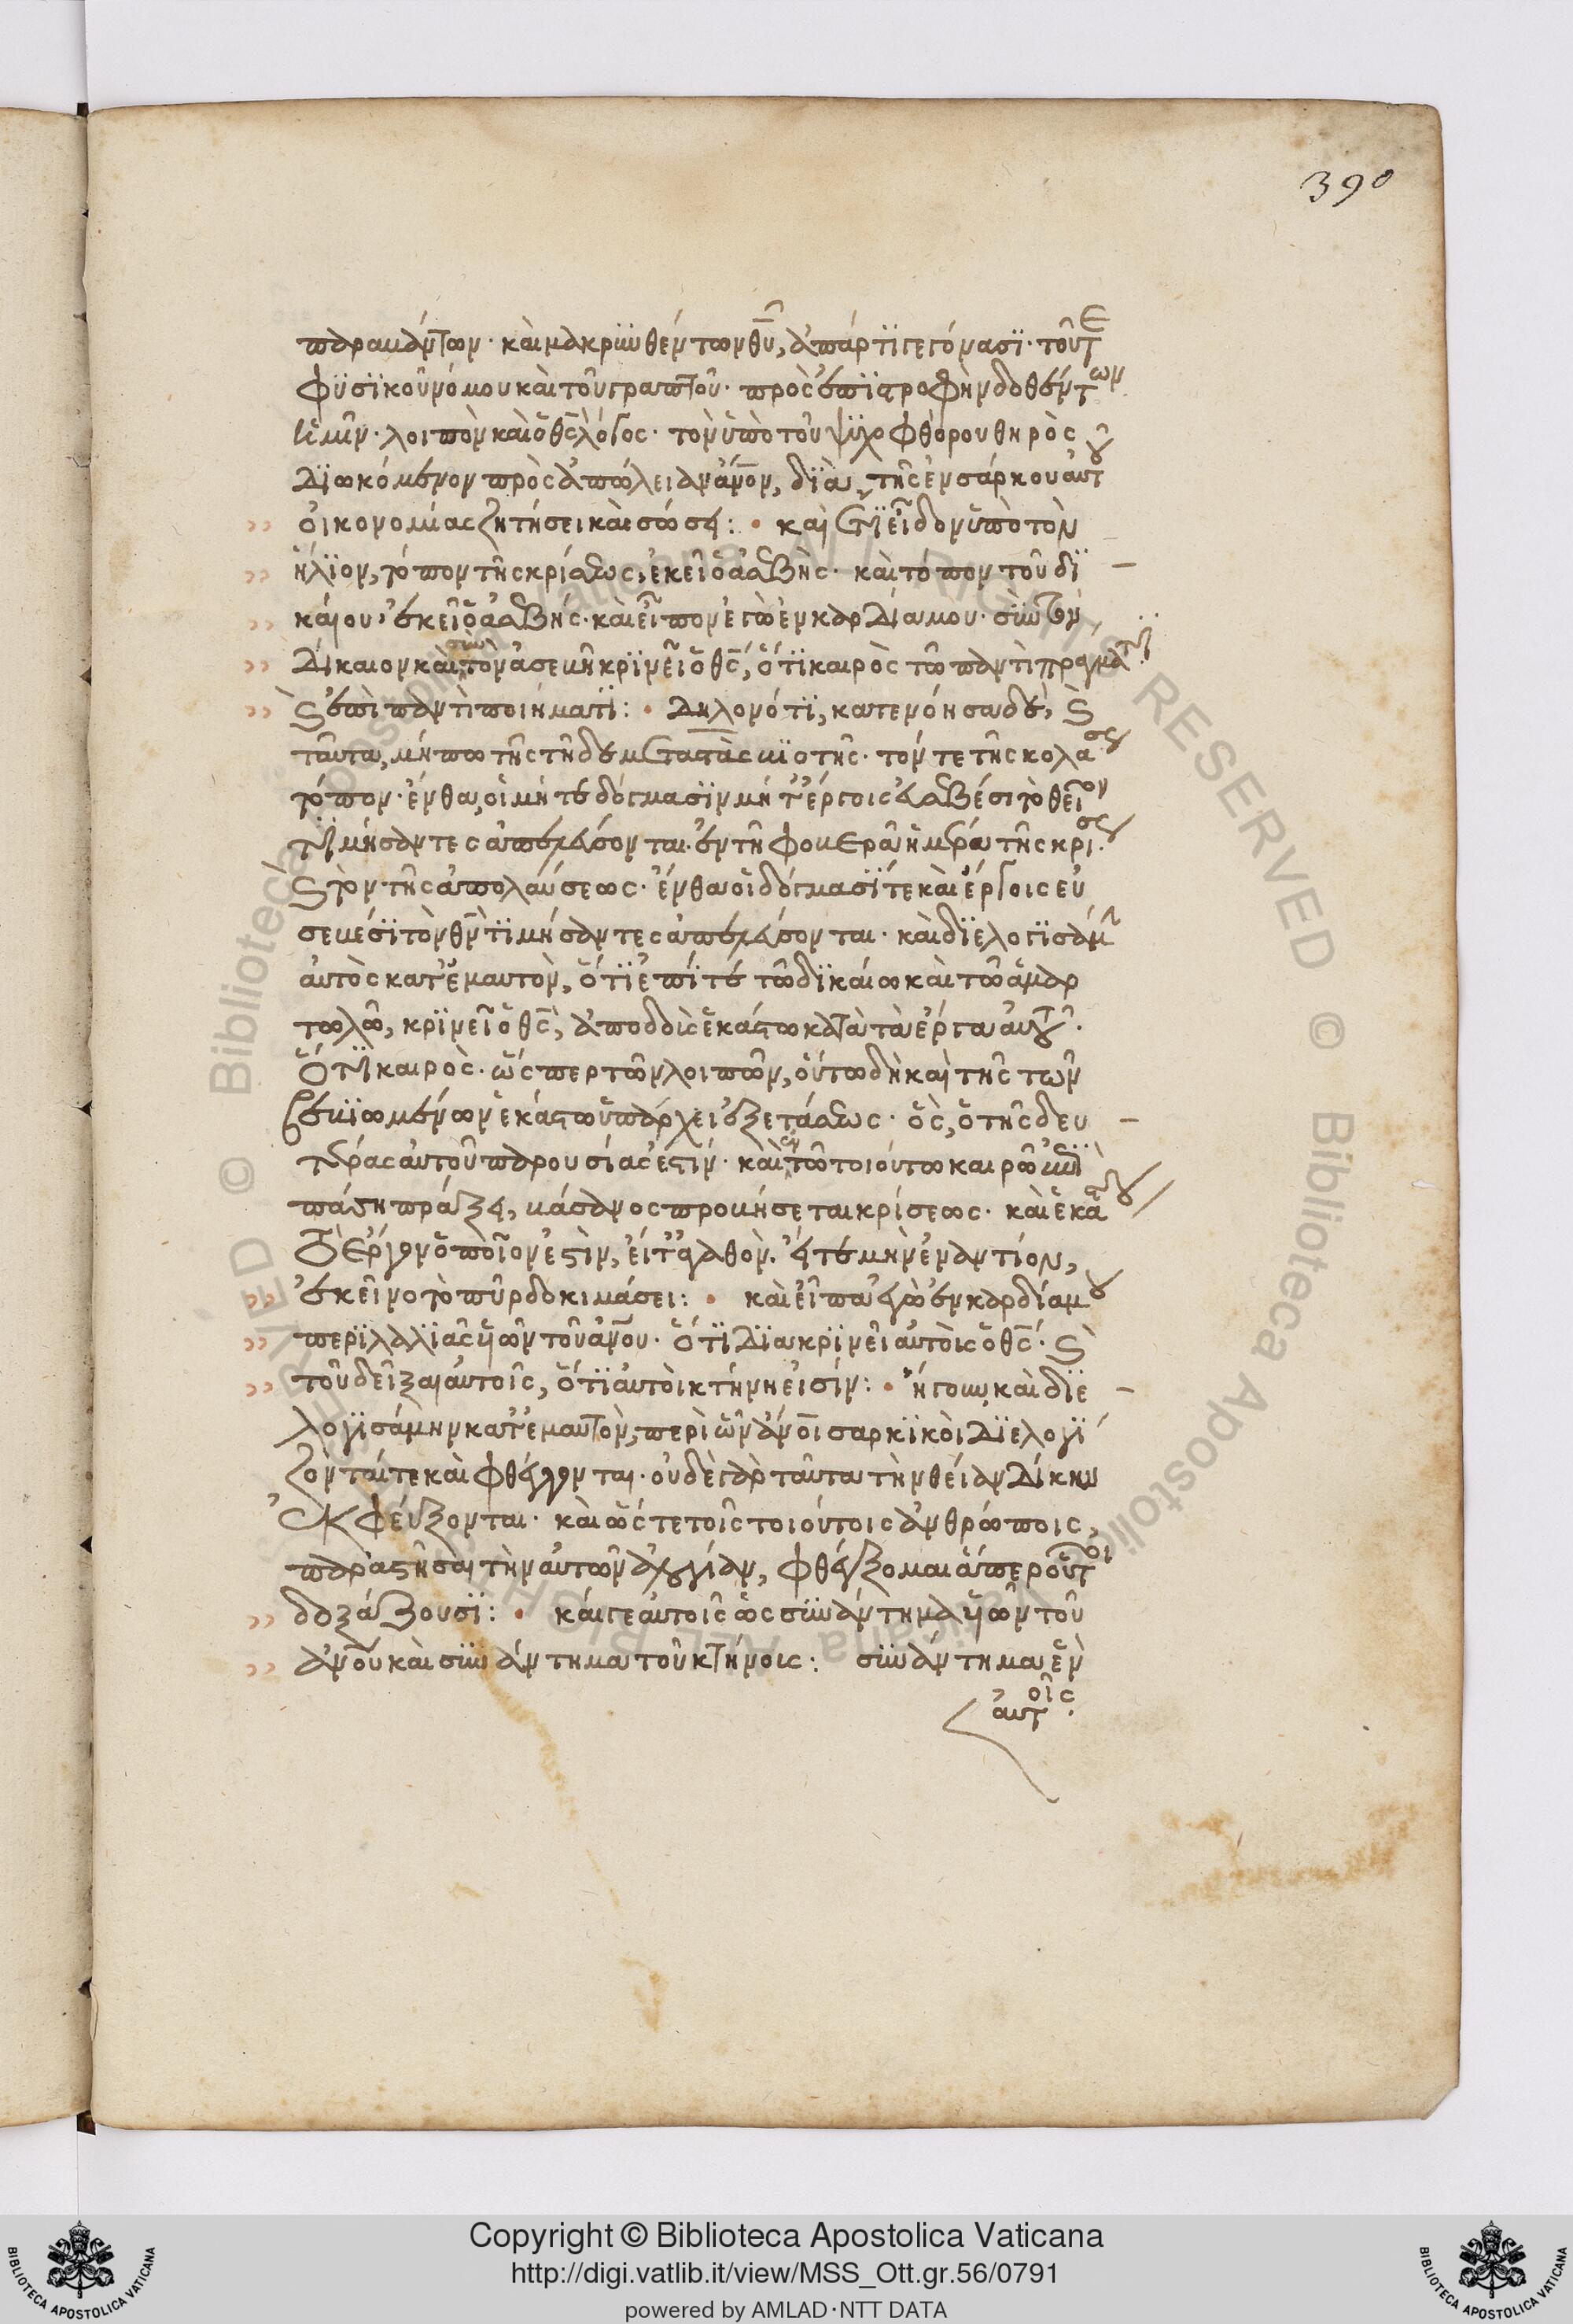 390
παραβάντων· καὶ μακρυνθέντων θῦ, ἀπάρτι γεγόνασι· τοῦτε
φυσικοῦ νόμου καὶ τοῦ γραπτοῦ· πρὸς ἐπιστροφὴν δοθέντων
ἡμῖν· λοιπὸν καὶ ὁ θς λόγος· τὸν ὑπὸ τοῦ ψυχοφθόρου θηρὸς
διωκόμενον πρὸς ἀπώλειαν ἄνον, διὰ τῆς ἐνσάρκου αὐτοῦ
οἰκονομίας ζητήσει καὶ σώσει: • καὶ ἔτι εἶδον ὑπὸ τὸν
ἥλιον, τόπον τῆς κρίσεως, ἐκεῖ ὁ ἀσεβής· καὶ τόπον τοῦ δι
καίου, ἐκεῖ ὁ ἀσεβής· καὶ εἶπον ἐγὼ ἐν καρδία μου· σὺν τὸν
δίκαιον καὶ σὺν τὸν ἀσεβῆ κρινεῖ ὁ θς, ὅτι καιρὸς τῶ παντὶ πράγματι
καὶ ἐπὶ παντὶ ποιήματι: • Δηλονότι, κατενόησα δὲ, καὶ
ταῦτα, μήπω τῆς τῆδε μεταστὰς βιοτῆς· τόν τε τῆς κολάσεως
τόπον· ἔνθα, οἱ μήτε δόγμασιν μήτ' ἔργοις εὐσεβέσι τὸ θεῖον
τιμήσαντες ἀπελεύσονται· ἐν τῆ φοβερᾶ ἡμέρα τῆς κρίσεως
καὶ τὸν τῆς ἀπολαύσεως· ἔνθα οἱ δόγμασί τε καὶ ἔργοις εὐ
σεβέσι τὸν θν τιμήσαντες ἀπελεύσονται· καὶ διελογισάμην
αὐτὸς κατ' ἐμαυτὸν, ὅτι ἐπί τε τῶ δικαίω καὶ τῶ ἁμαρ
τωλῶ, κρινεῖ ὁ θς, ἀποδοὺς ἑκάστω κατὰ τὰ ἔργα αὐτοῦ.
Ὅτι καιρὸς· ὥσπερ τῶν λοιπῶν, οὕτω δὴ καὶ τῆς τῶν
βεβιωμένων ἑκάστω ὑπάρχει ἐξετάσεως· ὃς, ὁ τῆς δευ
τέρας αὐτοῦ παρουσίας ἐστίν· καὶ ἐν τῶ τοιούτω καιρῶ ἐπὶ
πάση πράξει, βάσανος προβήσεται κρίσεως· καὶ ἑκάστου
τὸ ἔργον ὁποῖον ἐστὶν, εἴτ' ἀγαθὸν. εἴτε μὴν ἐναντίον,
ἐκεῖνο τὸ πῦρ δοκιμάσει: • καὶ εἶπα ἐγὼ ἐν καρδία μου
περὶ λαλιᾶς υἱῶν τοῦ ἄνου· ὅτι διακρινεῖ αὐτοὺς ὁ θς· καὶ
τοῦ δεῖξαι αὐτοῖς, ὅτι αὐτοὶ κτήνη εἰσίν: • ἤγουν καὶ διε
λογισάμην κατ' ἐμαυτὸν, περὶ ὧν ἄνοι σαρκικοὶ διελογί
ζονταί τε καὶ φθέγγονται· οὐδὲ γὰρ ταῦτα τὴν θείαν δίκην
ἐκφεύξονται· καὶ ὥστε τοῖς τοιούτοις ἀνθρώποις,
παραστῆσαι τὴν αὐτῶν ἀλογίαν, φθέγξομαι ἅπερ οὗτοι
δοξάζουσι: • καίγε αὐτοῖς ὡς συνάντημα υἱῶν τοῦ
ἀνοῦ καὶ συνάντημα τοῦ κτήνοις: συνάντημα ἓν
αὐτοῖς.
Copyright © Biblioteca Apostolica Vaticana
http://digi.vatlib.it/view/MSS_Ott.gr.56/0791
powered by AMLAD·NTT DATA